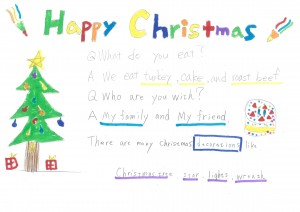 Happy Christmas
Q What do you eat?
A We eat turkey, cake, and roast beef
Q Who are you with?
A My family and My friend
There are many Christmas decorations like
Christmas tree star, lights, wreath